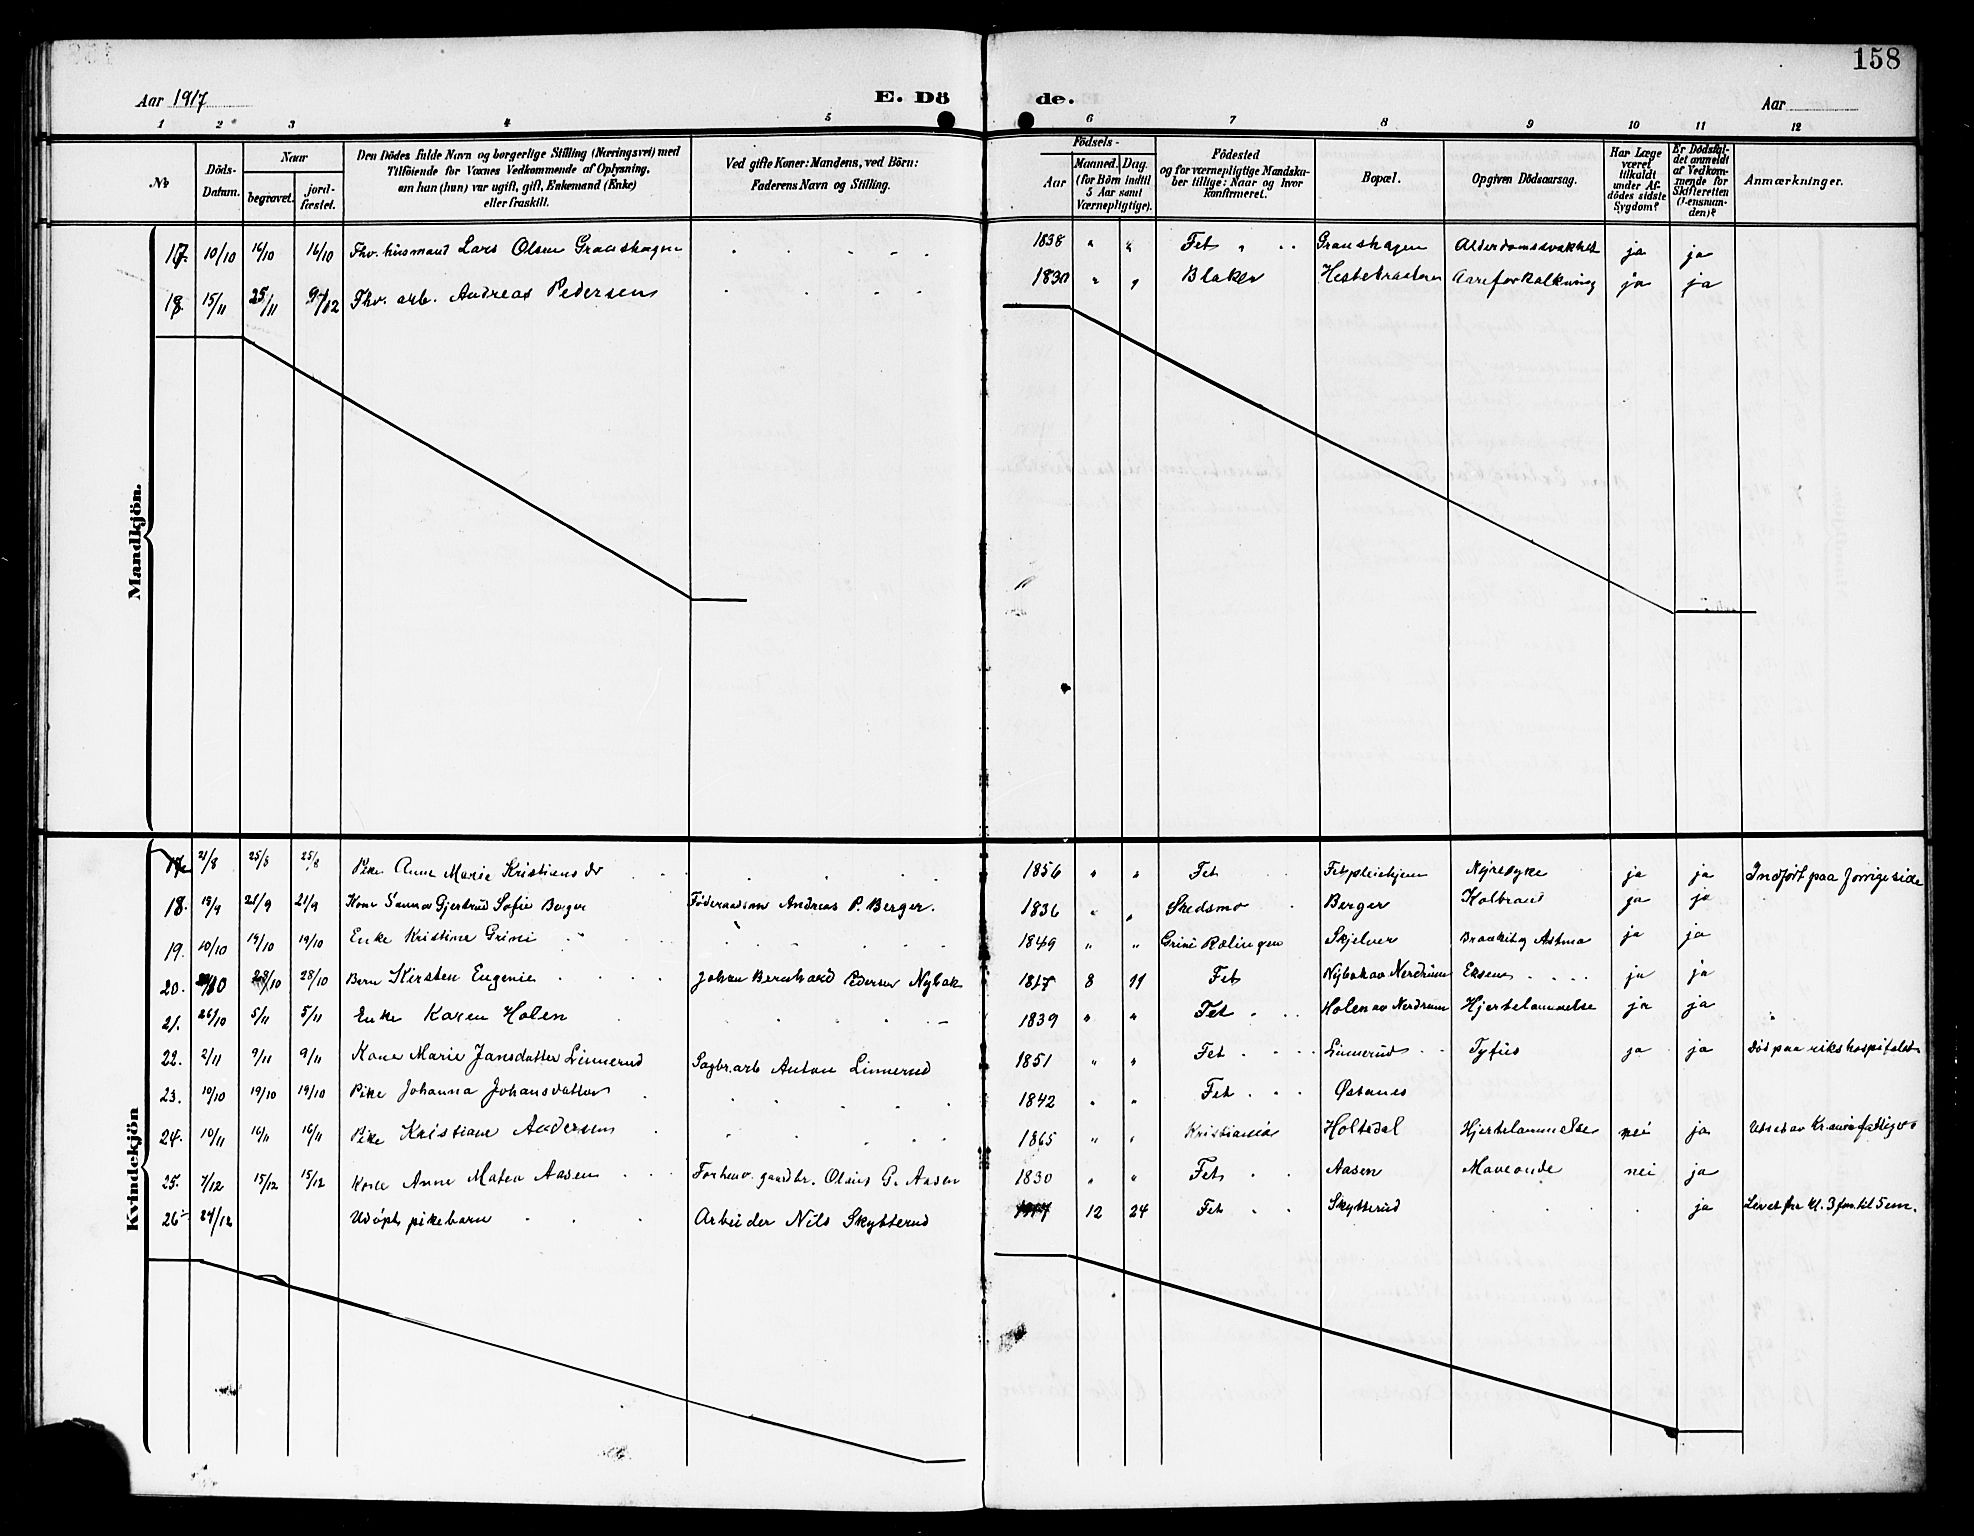 158
Aar 1917
E. Dö de.
Aar
1 2 3 4 5 6 7 8 9 10 11 12
No
Döds-Datum.
Naar
begravet.
jord-fæstet.
Den Dödes fulde Navn og borgerlige Stilling (Næringsvei) med
Tilföiende for Voxnes Vedkommende af Oplysning,
om han (hun) var ugift, gift, Enkemand (Enke)
eller fraskilt.
Ved gifte Koner: Mandens, ved Börn:
Faderens Navn og Stilling.
Födsels-
Aar
Maaned. Dag.
(for Börn indtil
5 Aar samt
Værnepligtige).
Födested
og for værnepligtige Mandska-
ber tillige: Naar og hvor
konfirmeret.
Bopæl.
Opgiven Dödsaarsag.
Har Læge
været
tilkaldt
under Af-
dödes sidste
Sygdom?
Er Dödsfal-
det anmeldt
af Vedkom-
mende for
Skifteretten
(Lensman-
den)?
Anmærkninger.
Mandkjön.
17. 10/10 16/10 16/10 Fhv. husmand Lars Olsen Granshagen 1838 " " Fet Granshagen Alderdomssvakhet ja ja
18. 15/11 25/11 9/12 Fhv. arb. Andreas Pedersen 1830 " " Blaker Aareforkalkning ja ja
Kvindekjön
17. 21/8 25/8 25/8 Pike Anne Marie Kristiensdr 1856 " " Fet Fetpleiehjem Nyresyke ja ja Indført paa forrige side
18. 19/9 21/9 21/9 Kone Gjertrud Sofie Berger Föderaadsm Andreas P. Berger. 1836 " " Skedsmo Berger Kolbrand ja ja
19. 10/10 19/10 19/10 Enke Kristine Grini 1849 " " Grini Rælingen Skjelver Bronkit og Astma ja ja
20. 28/10 28/10 Barn Kirsten Eugenie Johan Bernhard Pedersen Nybak 1917 8 11 Fet Nybak av Nerdrum Eksem ja ja
21. 26/10 5/11 5/11 Enke Karen Holen 1839 " " Fet Holen av Nerdrum Hjertelammelse ja ja
22. 2/11 9/11 9/11 Kone Marie Jansdatter Linnerud Sagbr.arb Anton Linnerud 1851 " " Fet Linnerud Tyfus ja ja Død paa rikshospitalet
23. 10/10 19/10 19/10 Pike Johanna Johansdatter 1842 " " Fet Østanes
24. 10/11 16/11 16/11 Pike Kristiane Andersen 1865 " " Kristiania Holtedal Hjertelammelse nei ja Utsat av Kr.ania fattigv.
25. 7/12 15/12 15/12 Kone Anne Matea Aasen Forhenv. gaardbr. Olaus G. Aasen 1830 " " Fet Aasen Maveonde nei ja
26. 24/12 Udöpt pikebarn Arbeider Nils Skytterud 1917 12 24 Fet Skytterud ja Levet fra kl. 3 fm. til 5 em.